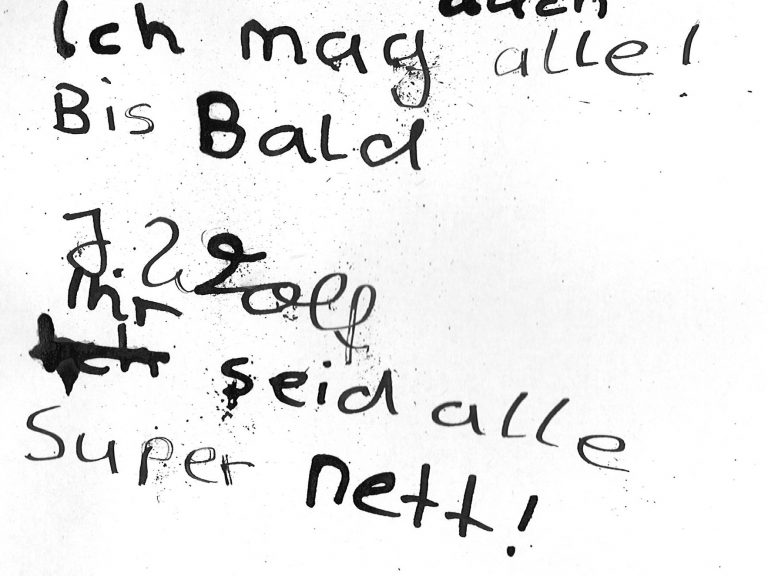 auch
Ich mag alle!
Bis Bald
J. Wolf
Ihr
seid alle
Super nett!